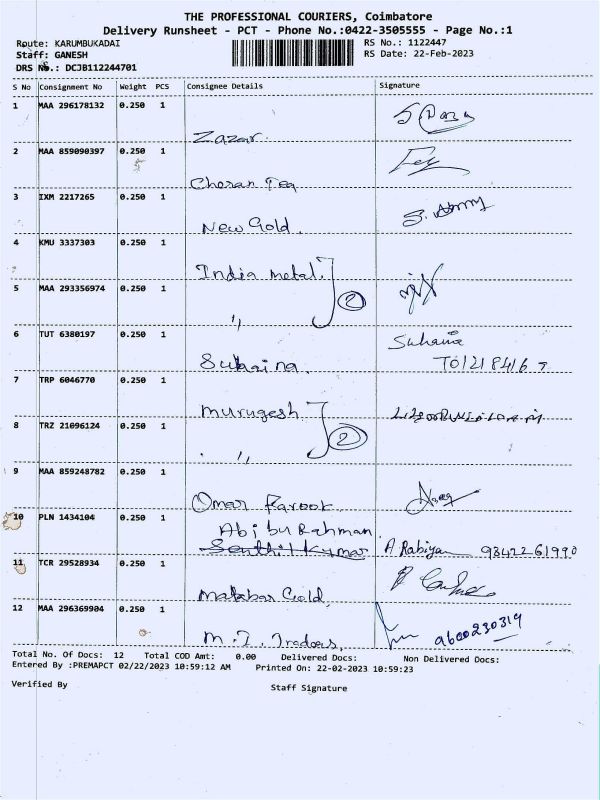 THE PROFESSIONAL COURIERS, Coimbatore
Delivery Runsheet - PCT - Phone No.:0422-3505555 - Page No.:1
Route: KARUMBUKADAI RS No.: 1122447
Staff: GANESH RS Date: 22-Feb-2023
DRS No.: DCJB112244701
S No Consignment No Weight PCS Consignee Details Signature
1 MAA 296178132 0.250 1
Zazar.
2 MAA 859090397 0.250 1
Cheran Tea
3 IXM 2217265 0.250 1
New Gold.
4 KMU 3337303 0.250 1
India metal.
5 MAA 293356974 0.250 1 2
"
6 TUT 6380197 0.250 1
Suhaina
7 TRP 6046770 0.250 1
murugesh
முருகேஷ்
8 TRZ 21096124 0.250 1 2
"
9 MAA 859248782 0.250 1
Omar Farook
10 PLN 1434104 0.250 1
Abibu Rahman
Senthil Kumar A. Rabiya 9342261990
11 TCR 29528934 0.250 1
Malabar Gold,
12 MAA 296369904 0.250 1
M.I. Tradeas, 9600230319
Total No. Of Docs: 12 Total COD Amt: 0.00 Delivered Docs: Non Delivered Docs:
Entered By :PREMAPCT 02/22/2023 10:59:12 AM Printed On: 22-02-2023 10:59:23
Verified By Staff Signature